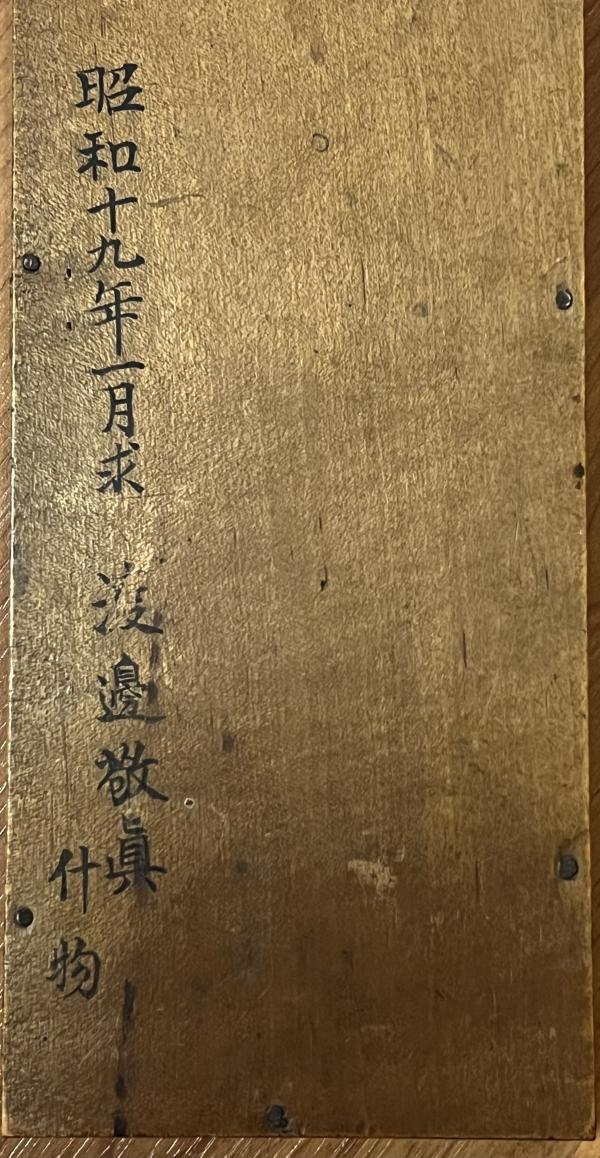 昭和十九年一月求 渡邊敬眞
什物